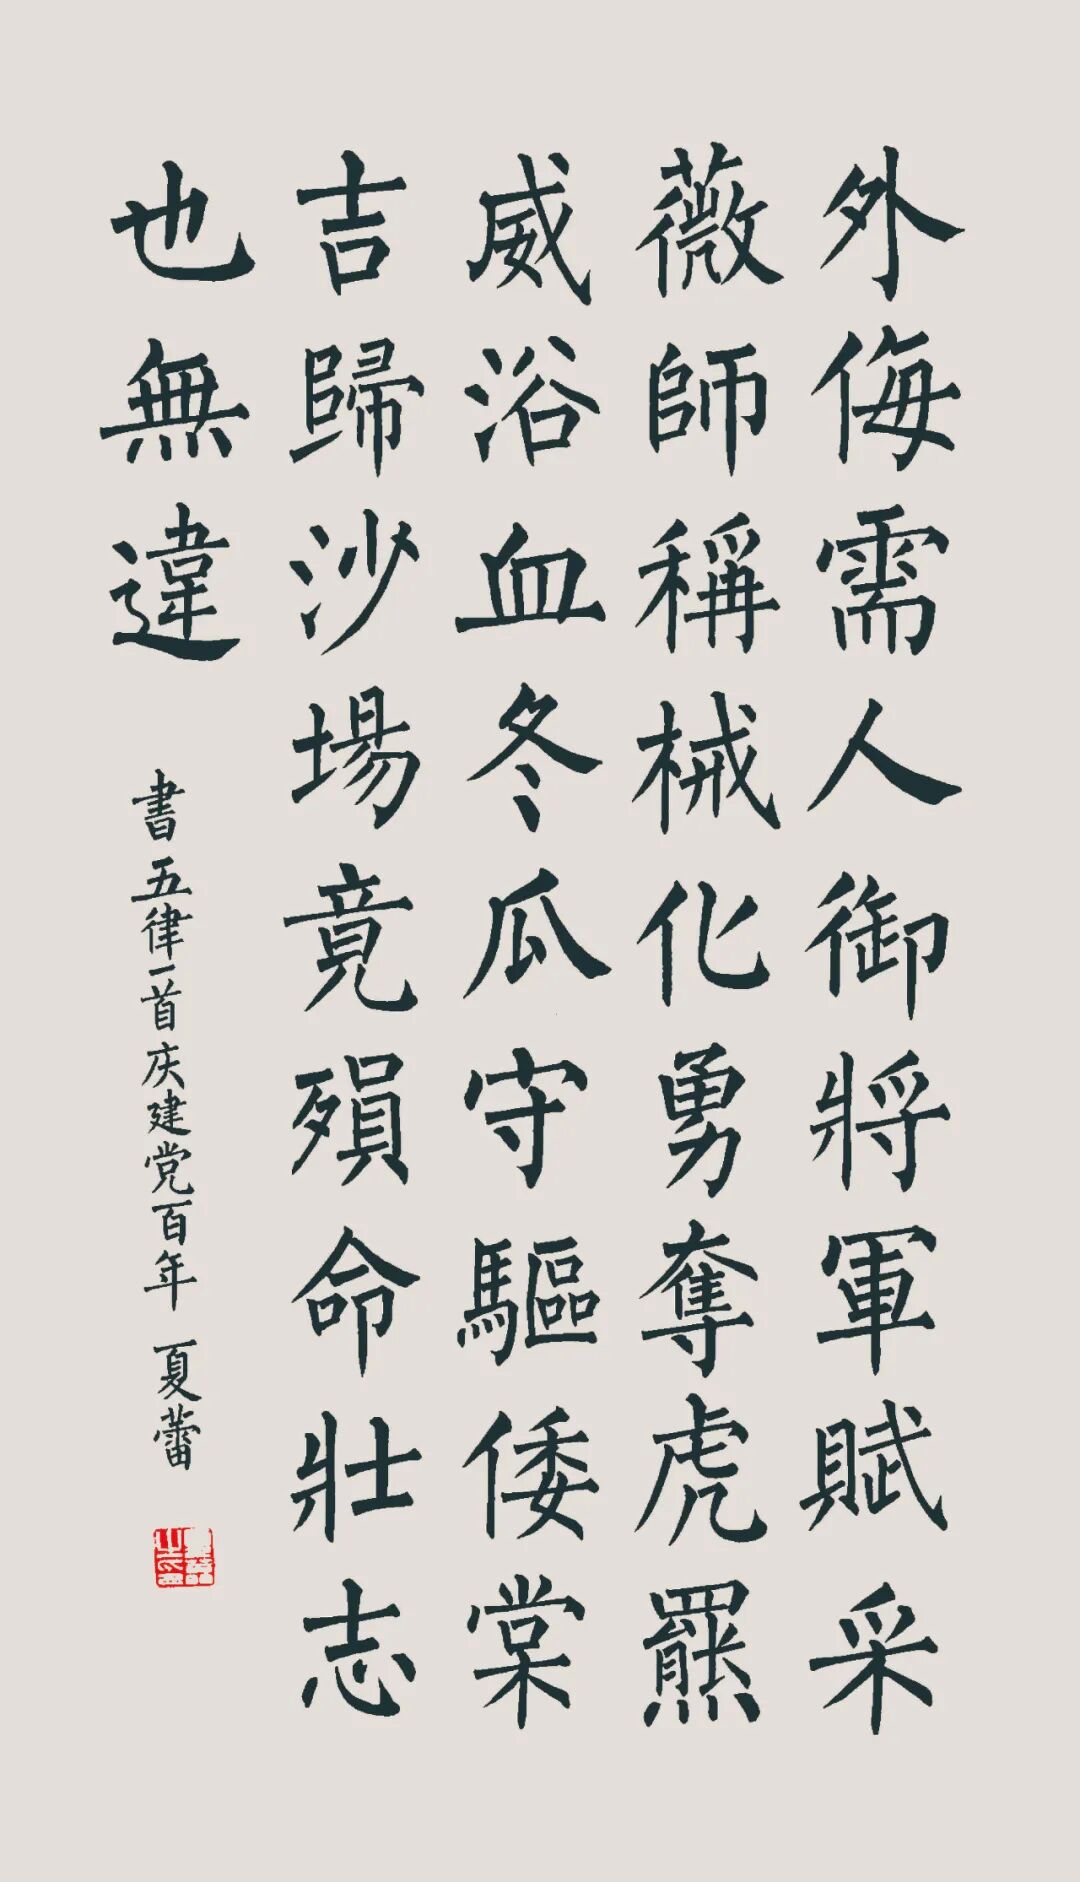 外侮需人御將軍賦采
薇師稱械化勇奪虎羆
威浴血冬瓜守驅倭棠
吉歸沙場竟殞命壯志
也無違
書五律一首庆建党百年 夏蕾